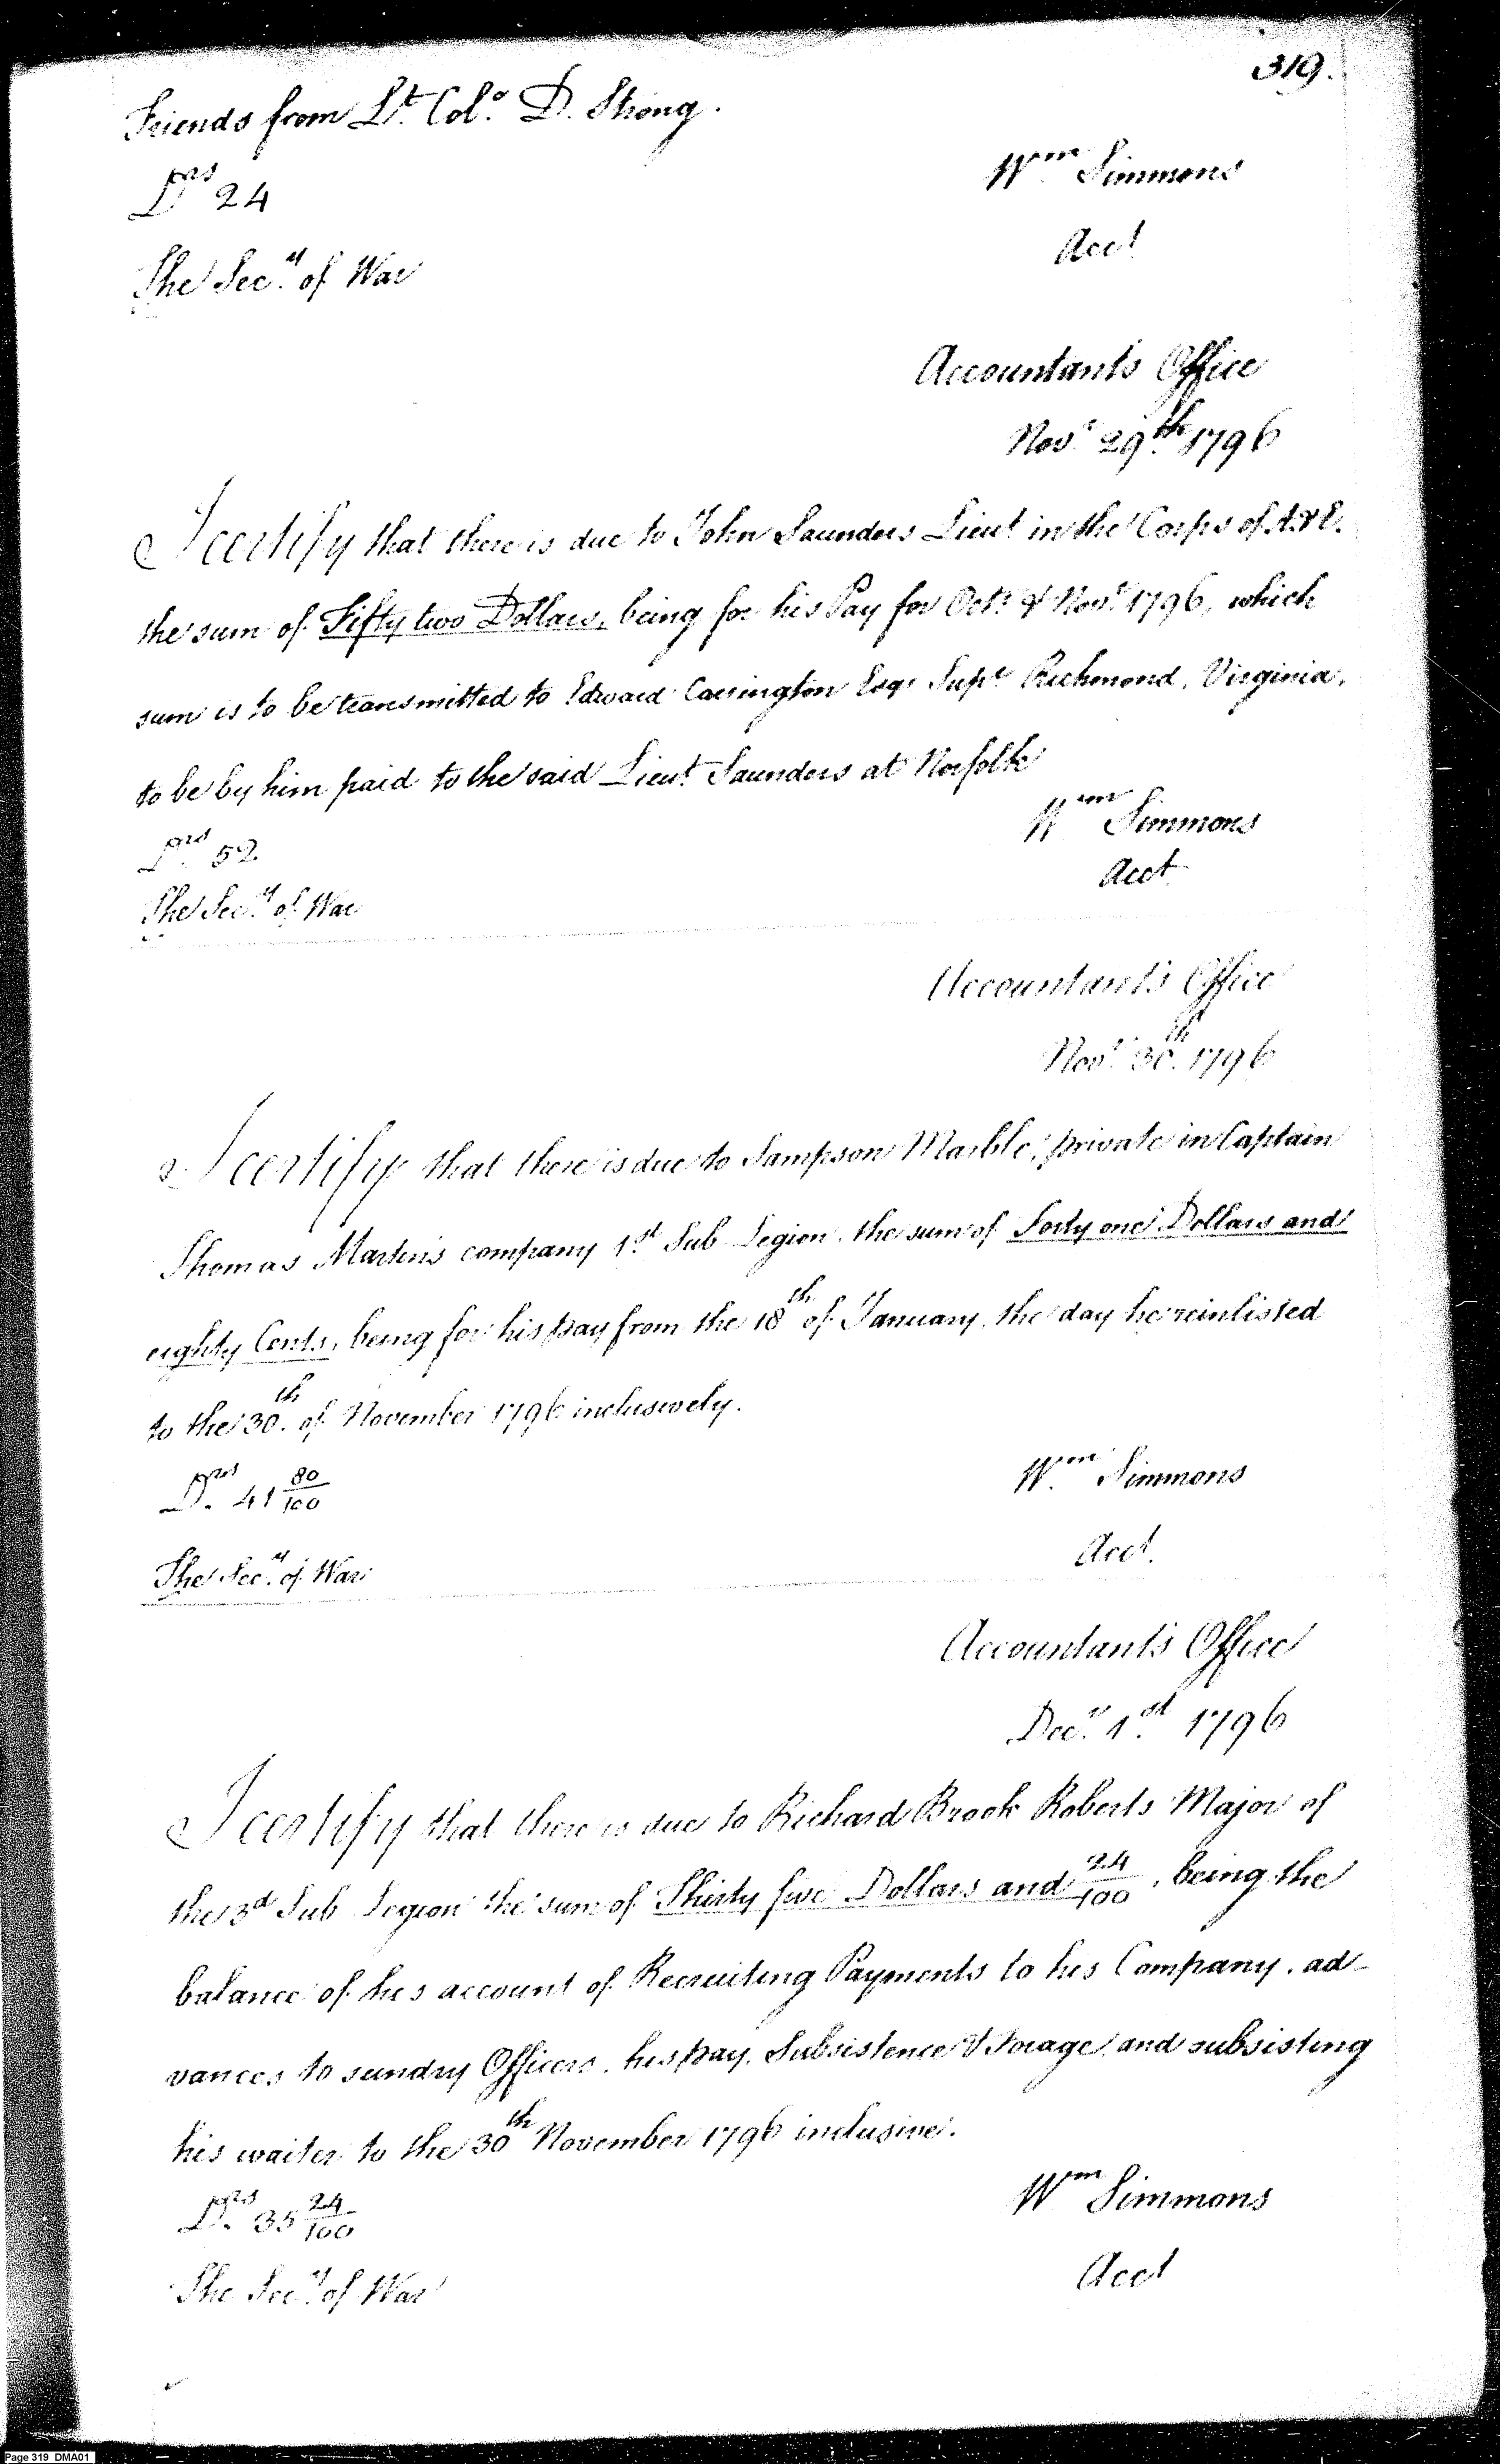 319.
Friends from Lt. Colo. D. Strong.
Drs 24
Wm Simmons
Acct
The Secy. of War
Accountant's Office
Novr. 29th. 1796
I certify that there is due to John Saunders Lieut in the Corps of A & E.
the sum of Fifty two Dollars, being for his Pay for Octr. & Novr. 1796, which
sum is to be transmitted to Edward Carrington Esqr Supt. Richmond, Virginia,
to be by him paid to the said Lieut. Saunders at Norfolk
Wm Simmons
Drs. 52
Acct
The Secy. of War
Accountant's Office
Novr. 30th. 1796
I certify that there is due to Sampson Marble, private in Captain
Thomas Martin's company 1st. Sub Legion, the sum of Forty one Dollars and
eighty Cents, being for his pay from the 18th of January, the day he reinlisted
to the 30th. of November 1796 inclusively.
Drs. 41 80/100
Wm. Simmons
Acct.
The Secy. of War
Accountant's Office
Decr. 1st. 1796
I certify that there is due to Richard Brook Roberts Major of
the 3d Sub Legion the sum of Thirty five Dollars and 24/100, being the
balance of his account of Recruiting Payments to his Company, ad-
vances to sundry Officers, his pay, Subsistence & Forage, and subsisting
his waiter to the 30th November 1796 inclusive.
Drs. 35 24/100
Wm Simmons
Acct
The Secy. of War
Page 319 DMA01